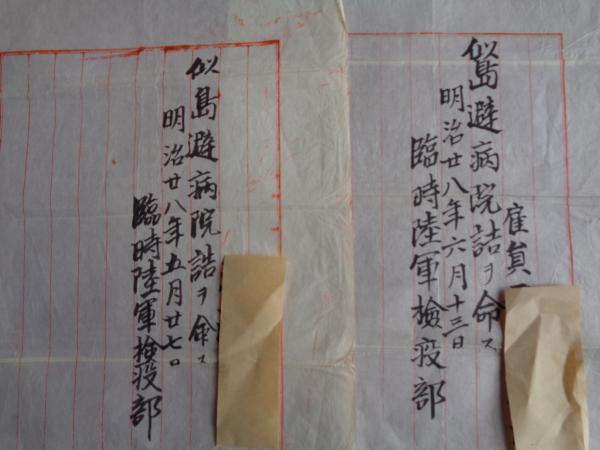 雇員
似島避病院詰ヲ命ス
明治廿八年六月十三日
臨時陸軍檢疫部
似島避病院詰ヲ命ス
明治廿八年五月廿七日
臨時陸軍検疫部